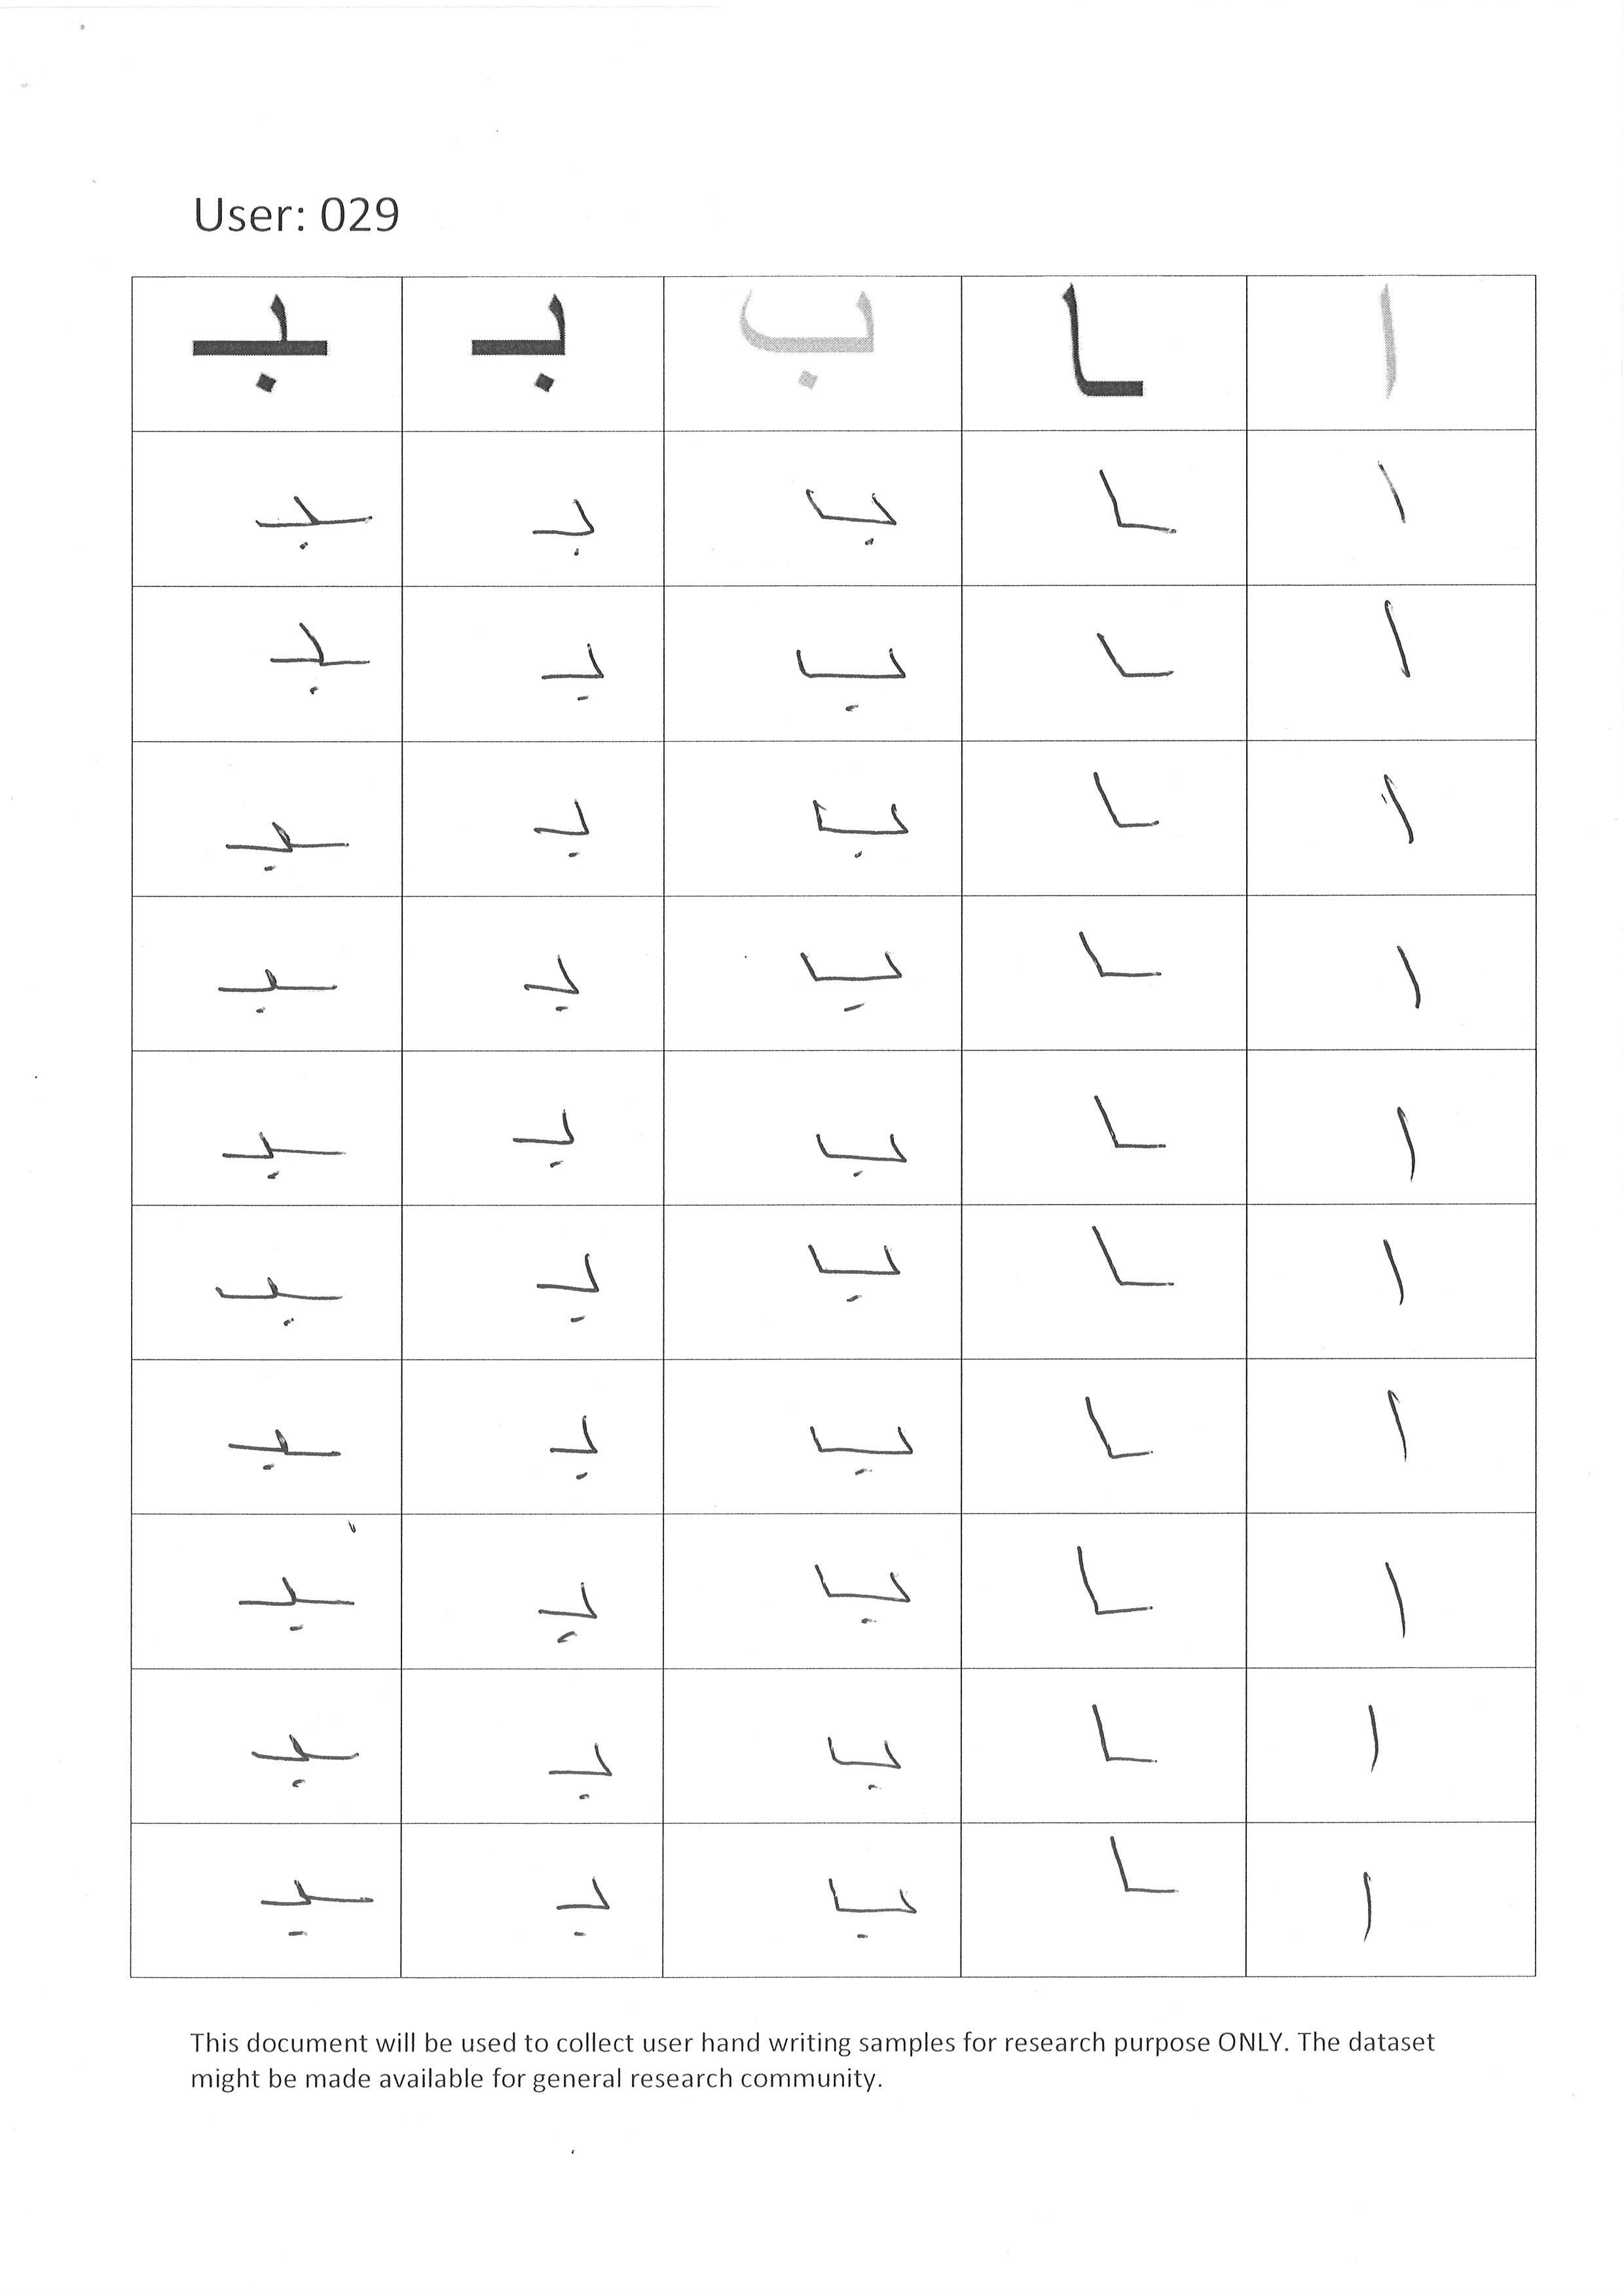 User: 029
ا ـا ب بـ ـبـ
ا ـا ب بـ ـبـ
ا ـا ب بـ ـبـ
ا ـا ب بـ ـبـ
ا ـا ب بـ ـبـ
ا ـا ب بـ ـبـ
ا ـا ب بـ ـبـ
ا ـا ب بـ ـبـ
ا ـا ب بـ ـبـ
ا ـا ب بـ ـبـ
ا ـا ب بـ ـبـ
This document will be used to collect user hand writing samples for research purpose ONLY. The dataset
might be made available for general research community.